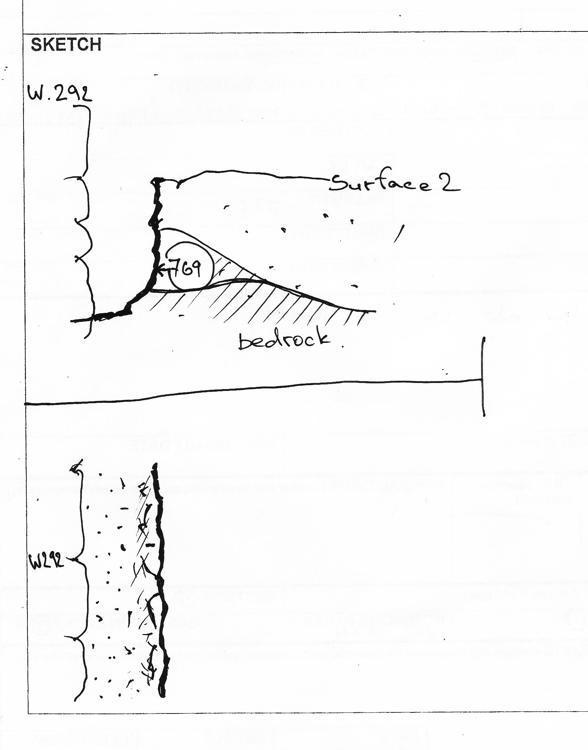 SKETCH
W.292
Surface 2
769
bedrock.
W292